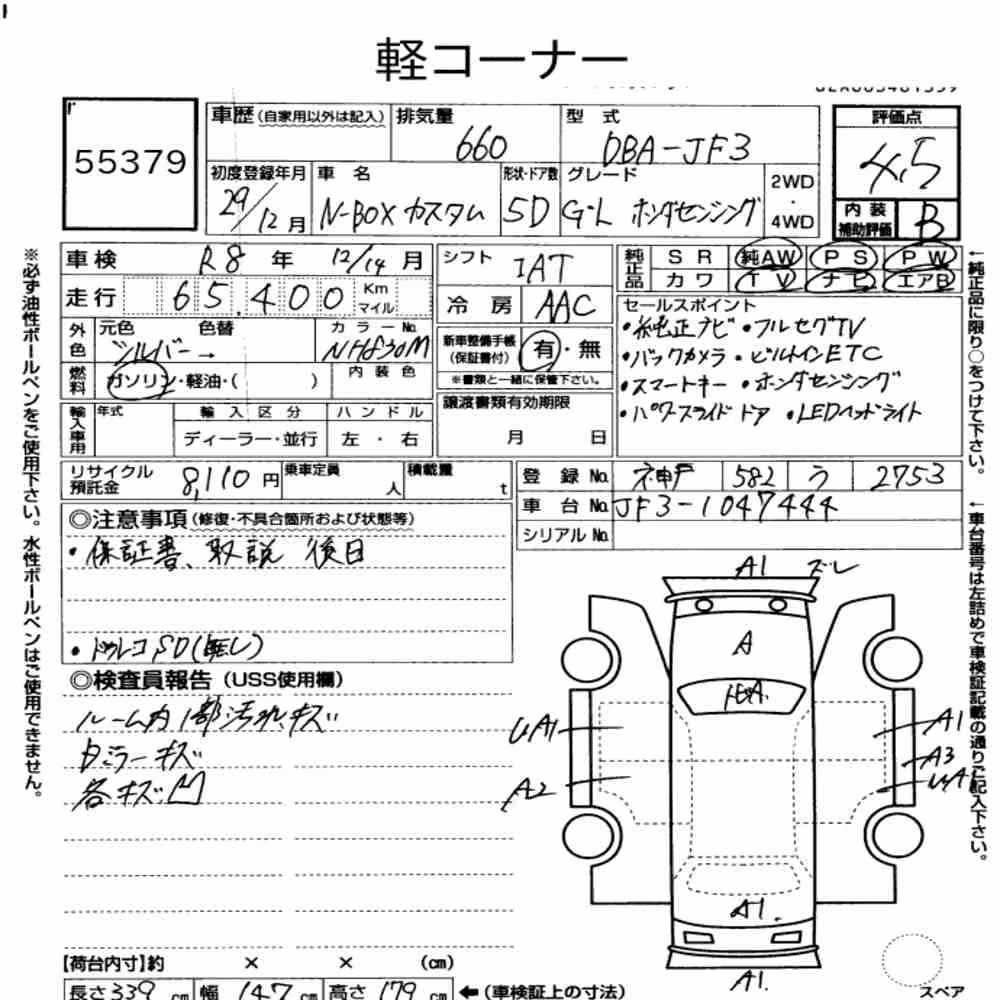 軽コーナー
55379
車歴 (自家用以外は記入) 排気量 660 型式 DBA-JF3
評価点 4.5
初度登録年月 29/12月 車名 N-BOX カスタム 形状・ドア数 5D グレード G・L ホンダセンシング 2WD・4WD
内装補助評価 B
車検 R8年 12/14月
走行 65,400 Km マイル
シフト IAT
冷房 AAC
純正品 SR 純AW PS PW
カワ TV ナビ エアB
外色 元色 シルバー → 色替 カラーNo. NH830M
燃料 ガソリン・軽油・( ) 内装色
新車整備手帳(保証書付) 有・無
※書類と一緒に保管下さい。
セールスポイント
・純正ナビ・フルセグTV
・バックカメラ・ビルトインETC
・スマートキー・ホンダセンシング
・パワースライドドア ・LEDヘッドライト
輸入車用 年式 輸入区分 ハンドル
ディーラー・並行 左・右
譲渡書類有効期限
月 日
リサイクル預託金 8,110円 乗車定員 人 積載量 t
登録No. 神戸 582 う 2753
車台No. JF3-1047444
シリアルNo.
◎注意事項(修復・不具合箇所および状態等)
・保証書、取説 後日
・ドラレコSD(無し)
◎検査員報告(USS使用欄)
ルーム内1部汚れキズ
各キズ凹
A1 ズレ
A
UA1
A1
A3
A2
A1.
A1.
【荷台内寸】約 × × (cm)
長さ339cm 幅147cm 高さ179cm ←(車検証上の寸法)
スペア
※必ず油性ボールペンをご使用下さい。水性ボールペンはご使用できません。
←純正品に限り○をつけて下さい。
←車台番号は左詰めで車検証記載の通りご記入下さい。